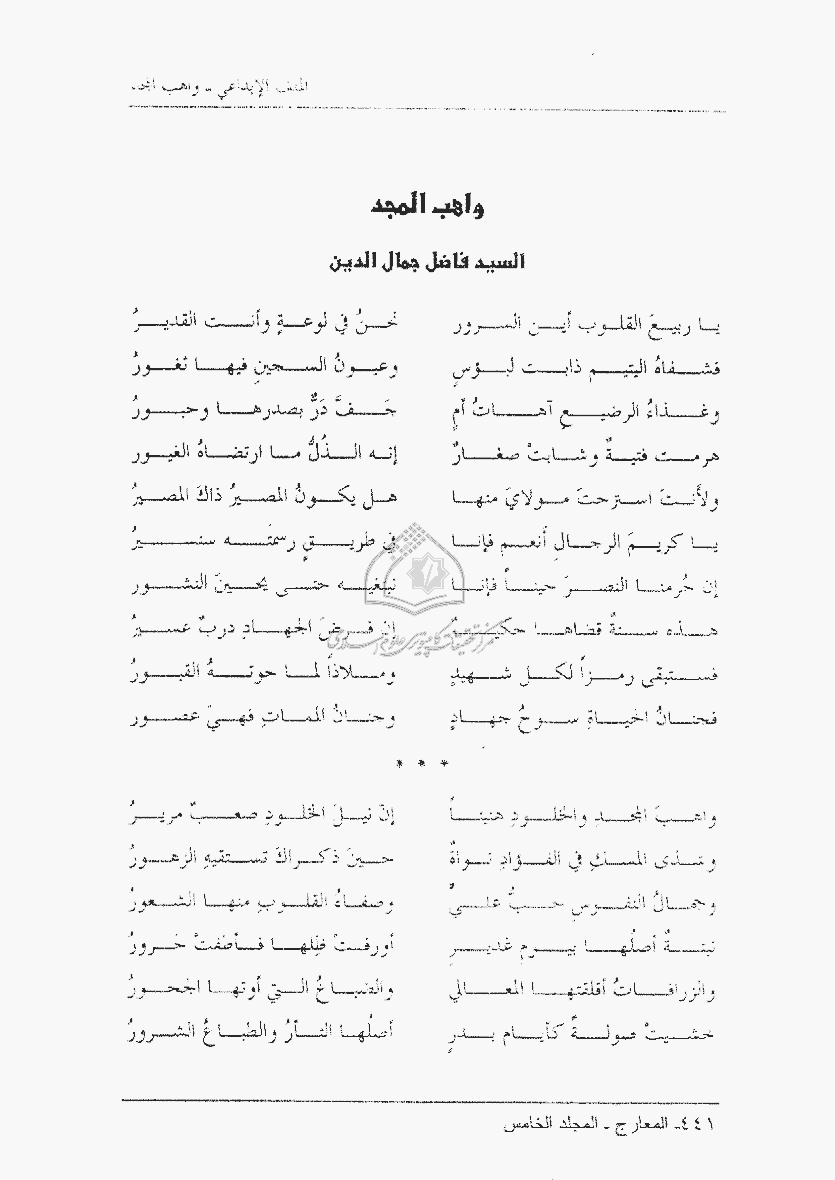 الملف الإبداعي - واهب المجد
واهب المجد
السيد فاضل جمال الدين
يا ربيعَ القلوب أين السرور نحنُ في لوعةٍ وأنت القديرُ
فشفاهُ اليتيم ذابت لبؤسٍ وعيونُ السجينِ فيها تغورُ
وغذاءُ الرضيعِ آهاتُ أمٍ جَفَّ دَرٌّ بصدرها وحبورُ
هرمت فتيةٌ وشابتْ صغارٌ إنه الذلُّ ما ارتضاهُ الغيور
ولأنتَ استرحتَ مولايَ منها هل يكونُ المصيرُ ذاكَ المصيرُ
يا كريمَ الرجالِ أنعم فإنا في طريقٍ رسمتَه سنسيرُ
إن حُرمنا النصرَ حيناً فإنا نبتغيه حتى يحينَ النشور
هذه سنةٌ قضاها حكيمٌ إن فرضَ الجهادِ دربٌ عسيرُ
فستبقى رمزاً لكل شهيدٍ وملاذاً لما حوتهُ القبورُ
فجنانُ الحياةِ سوحُ جهادٍ وجنانُ المماتِ فهيَ عصور
* * *
واهبَ المجدِ والخلودِ هنيئاً إنّ نيلَ الخلودِ صعبٌ مريرُ
وشذى المسكِ في الفؤادِ نواةٌ حينَ ذكراكَ تستقيهِ الزهورُ
وجمالُ النفوسِ حبُّ عليٍّ وصفاءُ القلوبِ منها الشعورُ
نبتةٌ أصلُها بيومِ غديرِ أورفتْ ظِلها فأطفتْ حَرورُ
والزرافاتُ أقلقتها المعالي والضباعُ التي أوتها الجحورُ
خشيتْ صولةً كأيام بدرٍ أصلُها الثأرُ والطباعُ الشرورُ
٤٤١- المعارج - المجلد الخامس